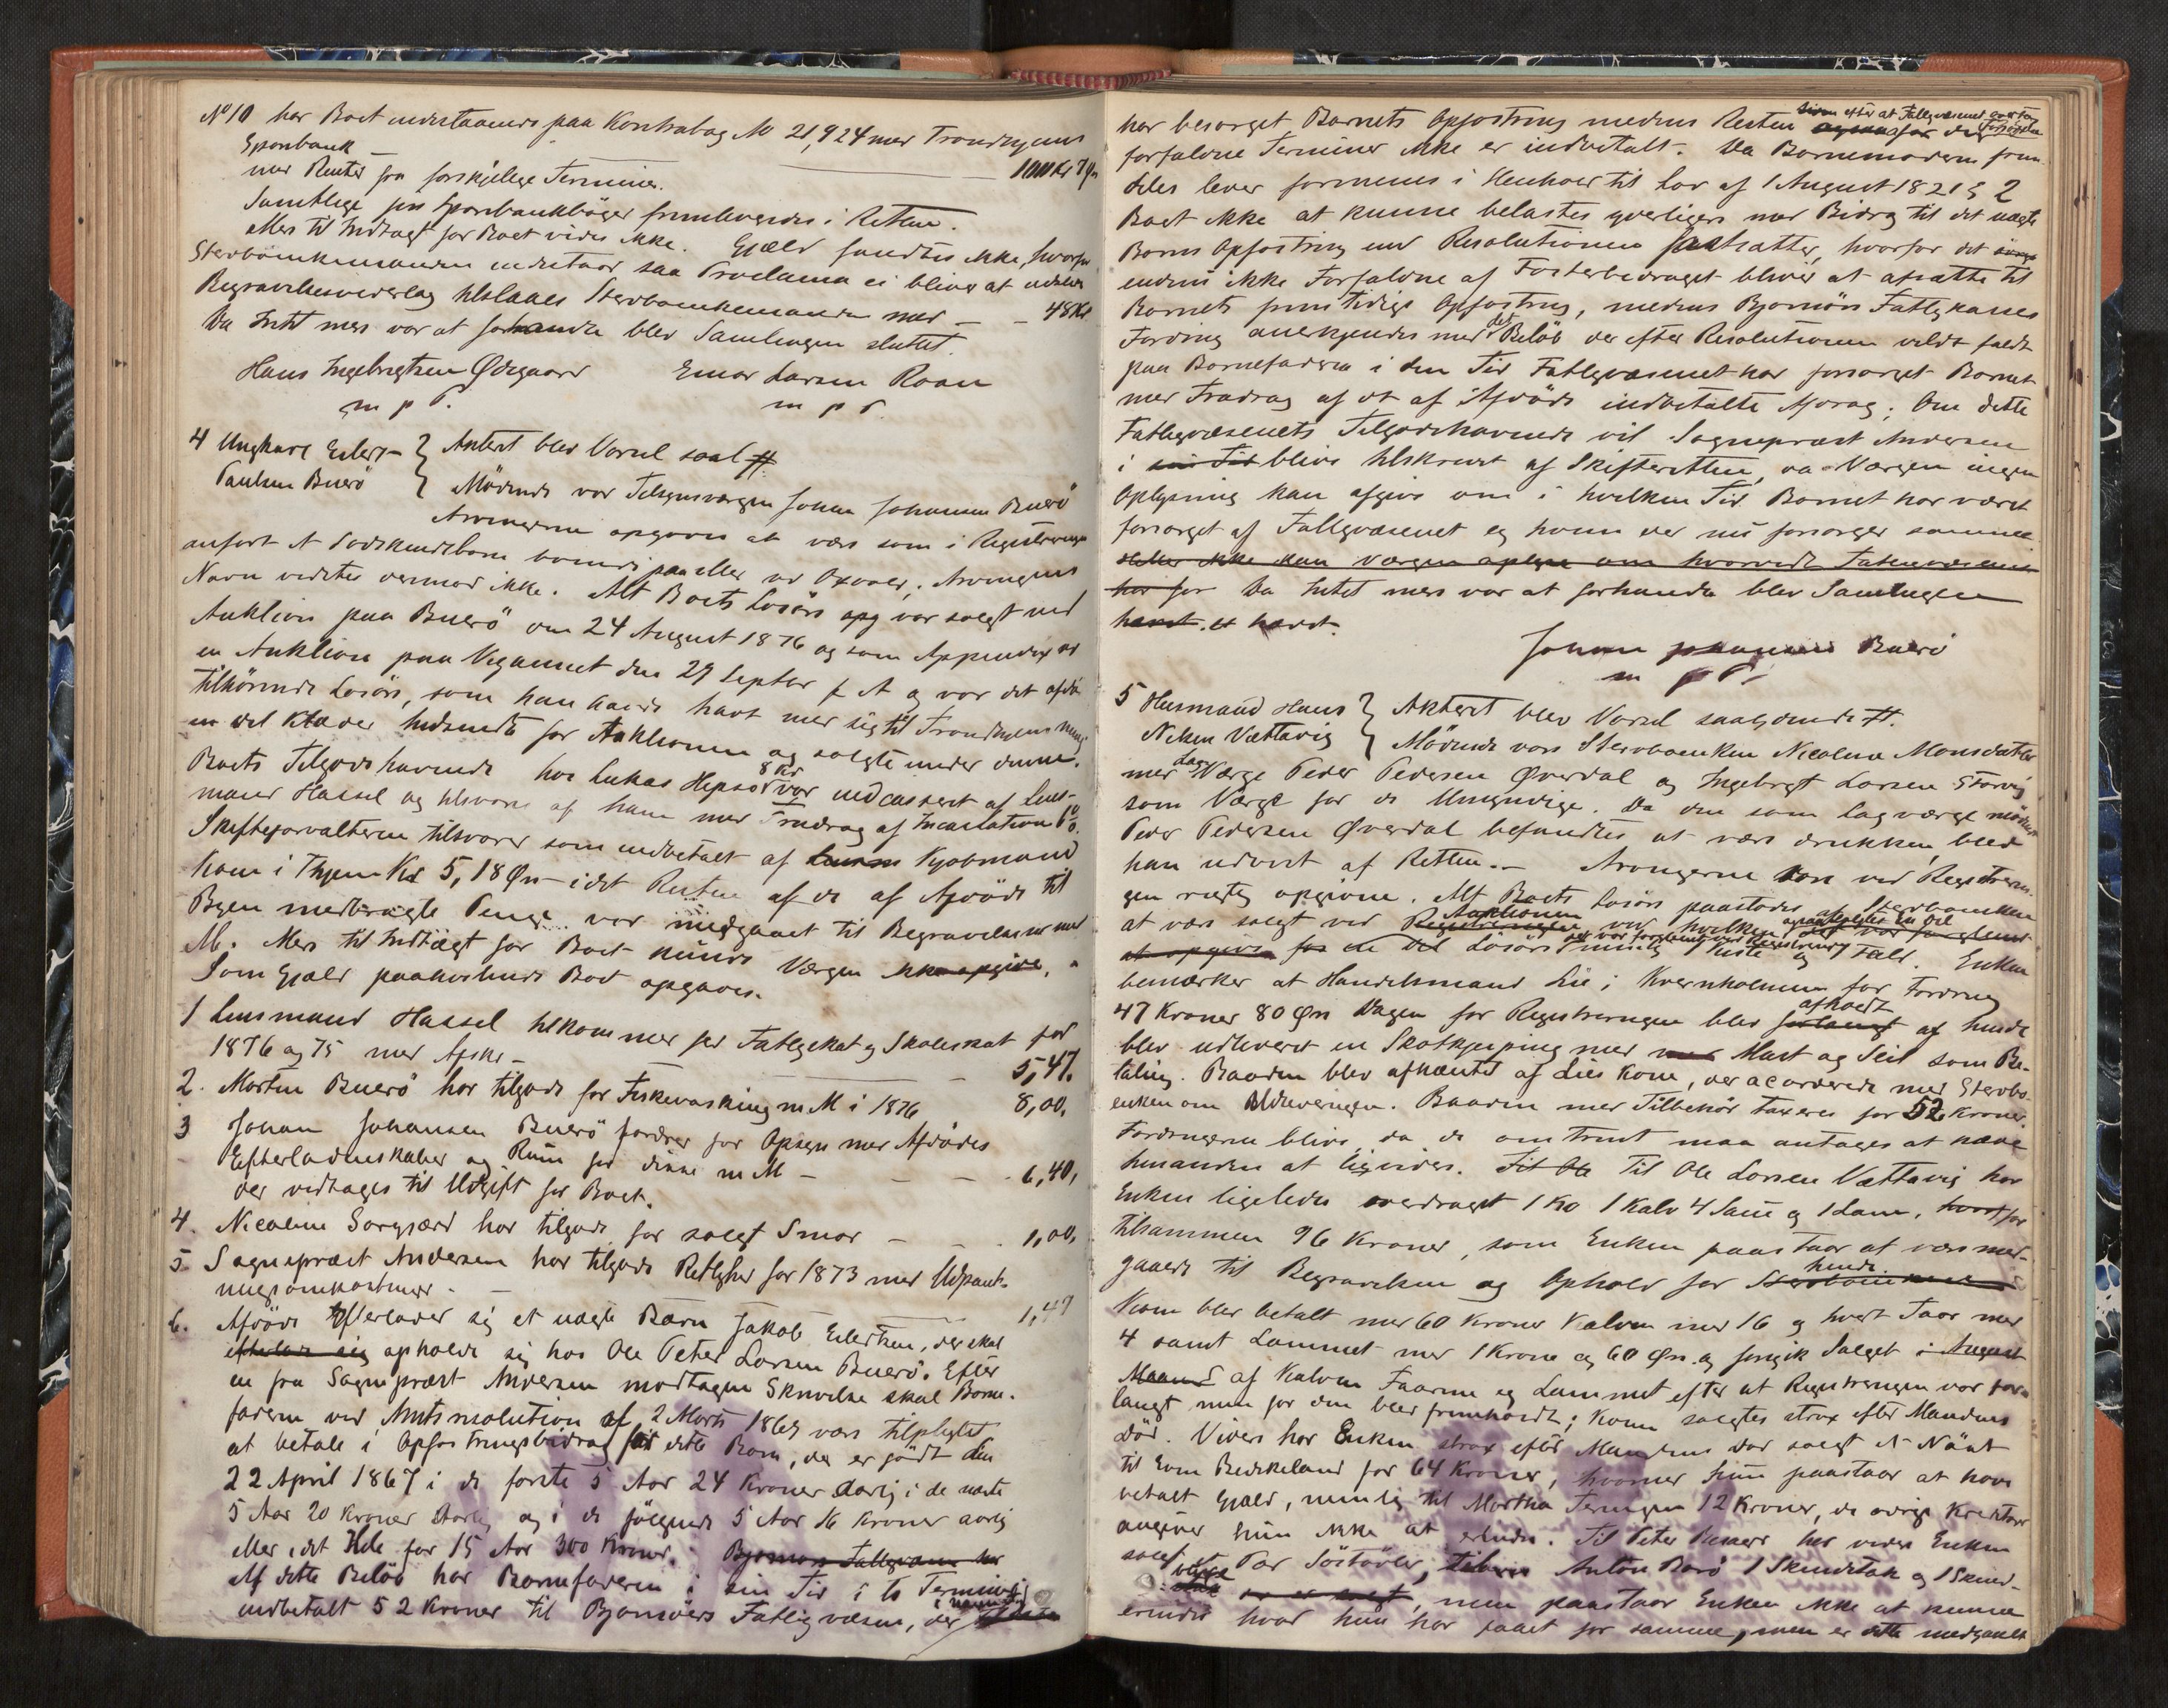 No 10 har Boet indestaaende paa Kontrabog No 21,924 med Trondhjems
Sparebank — 1000 Kr 79
med Renter fra forskjellige Terminer.
Samtlige Sparebankbøger fremlagdes i Retten.
Mere til Indtægt for Boet vides ikke. Gjæld fandtes ikke, hvorfor
Stervboenkemanden indestaar, saa Proclama ei bliver at udstede
Begravelsesvederlag tilstaaes Stervboenkemanden med — 48 Kr
Da Intet mere var at forhandle blev Samlingen sluttet.
Hans Ingebrigtsen Ødegaard Einar Larsen Roan
m p P. m p P.
4 Ungkarl Eilert Paulsen Buerö
Akteret blev Varsel saal #
Mödende var Tilsynsværgen Johan Johansen Buerö
Arvingerne opgaves at være som i Registreringen
anført et Sødskendebarn boende paa eller ved Oxvoll; Arvingens
Navn vidstes dermod ikke. Alt Boets Losöre opg var solgt ved
Auktion paa Buerö den 24 August 1876 og som Appendix ved
en Auktion paa Vegamnet den 29 Septbr f A og var det afdöde
tilhörende Losöre, som han havde havt med sig til Trondhjem nemlig
en del Klæder indsendte før Auktionen og solgte under denne.
Boets Tilgodehavende hos Lukas Hepsö 8 Kr var indcasseret af Lens-
mand Hassel og tilsvares af ham med Fradrag af Incassation 6 %.
Skifteforvalteren tilsvarer som indbetalt af Kjøbmand
Kr 5,18 Øre — idet Resten af de af Afdöde til
Byen medbragte Penge var medgaaet til Begravelsen med
M. Mere til Indtægt for Boet kunde Værgen ikke opgive.
Som Gjæld paahvilende Boet opgaves.
1 Lensmand Hassel tilkommer for Fattigskat og Skoleskat for
1876 og 75 med Afskr — 5,47.
2. Morten Buerö har tilgode for Fiskevasking m M i 1876 8,00.
3 Johan Johansen Buerö fordrer for Opsyn med Afdödes
Efterladenskaber og Rum for disse m M — 6,40,
der vedtages til Udgift for Boet.
4. Nicoline Sörgjærd har tilgode for solgt Smør — 1,00,
5. Sogneprest Andersen har tilgode Rettighed for 1873 med Udpant-
ningsomkostninger — 1,49
6. Afdöde efterlader sig et uægte Barn Jakob Eilertsen, der skal
efterlade sig opholde sig hos Ole Peter Larsen Buerö. Efter
en fra Sogneprest Andersen modtagen Skrivelse skal Barne-
faderen ved Amtsresolution af 2 Marts 1869 være tilpligtet
at betale i Opfostringsbidrag for dette Barn, der er födt den
22 April 1867 i de förste 5 Aar 24 Kroner aarlig i de næste
5 Aar 20 Kroner Aarlig og i de fölgende 5 Aar 16 Kroner aarlig
eller i det Hele for 15 Aar 300 Kroner. Bjørnörs Fattigvæsen har
Af dette Belöb har Barnefaderen i sin Tid i to Terminer
indbetalt 52 Kroner til Bjørnörs Fattigvæsen, der
har besørget Barnets Opfostring medens Resten efter at Fattigvæsenet
forfaldne Terminer ikke er indbetalt. Da Barnemoderen frem-
deles lever formenes i Henhold til Lov af 1 August 1821 § 2
Boet ikke at kunne belastes yderligere med Bidrag til det uægte
Barns Opfostring end Resolutionen fastsætter, hvorfor det
endnu ikke Forfaldne af Fosterbidraget bliver at afsætte til
Barnets fremtidige Opfostring, medens Bjørnörs Fattigkasses
Fordring anerkjendes med det Belöb der efter Resolutionen vilde faldt
paa Barnefaderen i den Tid Fattigvæsenet har forsørget Barnet
med Fradrag af det af Afdöde indbetalte Afdrag; Om dette
Fattigvæsenets Tilgodehavende vil Sogneprest Andersen
i sin Tid blive tilskrevet af Skifteretten, da Værgen ingen
Oplysning kan afgive om i hvilken Tid Barnet har været
forsørget af Fattigvæsenet og hvem der nu forsørger samme
Heller ikke kan Værgen oplyse om hvorvidt Fattigvæsenet
har for Da Intet mere var at forhandle blev Samlingen
hævet. hævet.
Johan Johansen Buerö
m p P.
5 Husmand Hans Nilsen Vættavig
Akteret blev Varsel saalydende #.
Mödende vare Stervboenken Nicoline Monsdatter
med Lagværge Peder Pedersen Øverdal og Ingebrigt Larsen Storvig
som Værge for de Umyndige. Da den som Lagværge mödende
Peder Pedersen Øverdal befandtes at være drukken, blev
han udvist af Retten. — Arvingerne ere ved Registrerin-
gen rigtig opgivne. Alt Boets Losöre paastodes af Stervboenken
at være solgt ved Registreringen Auktionen ved hvilken ogsaa solgtes en Del
at opgives for en Del Losöre nemlig 1 Kiste og 1 Fæld. Enken
bemærker at Handelsmand Lie i Kvernholmen for Fordring
47 Kroner 80 Øre Dagen før Registreringen blev forlangt afhændt af hende
blev udleveret en Skotkjeiping med Mast og Seil som Be-
taling. Baaden blev afhentet af Lies Kone, der accorderede med Stervbo-
enken om Udleveringen. Baaden med Tilbehör taxeres for 52 Kroner.
Fordringerne blive da de omtrent maa antages at hæve
hinanden at ligvidere. Til Ole Til Ole Larsen Vættavig har
Enken ligeledes overdraget 1 Ko 1 Kalv 4 Sauer og 1 Lam, hvorfor
tilsammen 96 Kroner, som Enken paastaar at være med-
gaaede til Begravelsen og Ophold for Stervboenken hende
Koen blev betalt med 60 Kroner Kalven med 16 og hvert Faar med
4 samt Lammet med 1 Krone og 60 Øre og foregik Salget i August
Maaned af Kalven Faarene og Lammet efter at Registreringen var for-
langt, men før den blev fremholdt; Koen solgtes strax efter Mandens
Död. Videre har Enken strax efter Mandens Död solgt et Nöst
til Even Bredkeland for 64 Kroner, hvormed hun paastaar at have
betalt Gjæld, nemlig til Martha Terningen 12 Kroner, de övrige Kreditorer
angiver hun ikke at erindre. Til Peter har videre Enken
solgt Par Söstövler, Anton Barö 1 Skindstak og 1 Skind-
, men paastaar Enken ikke at kunne
erindre hvad hun har faaet for samme, men er dette medgaaet